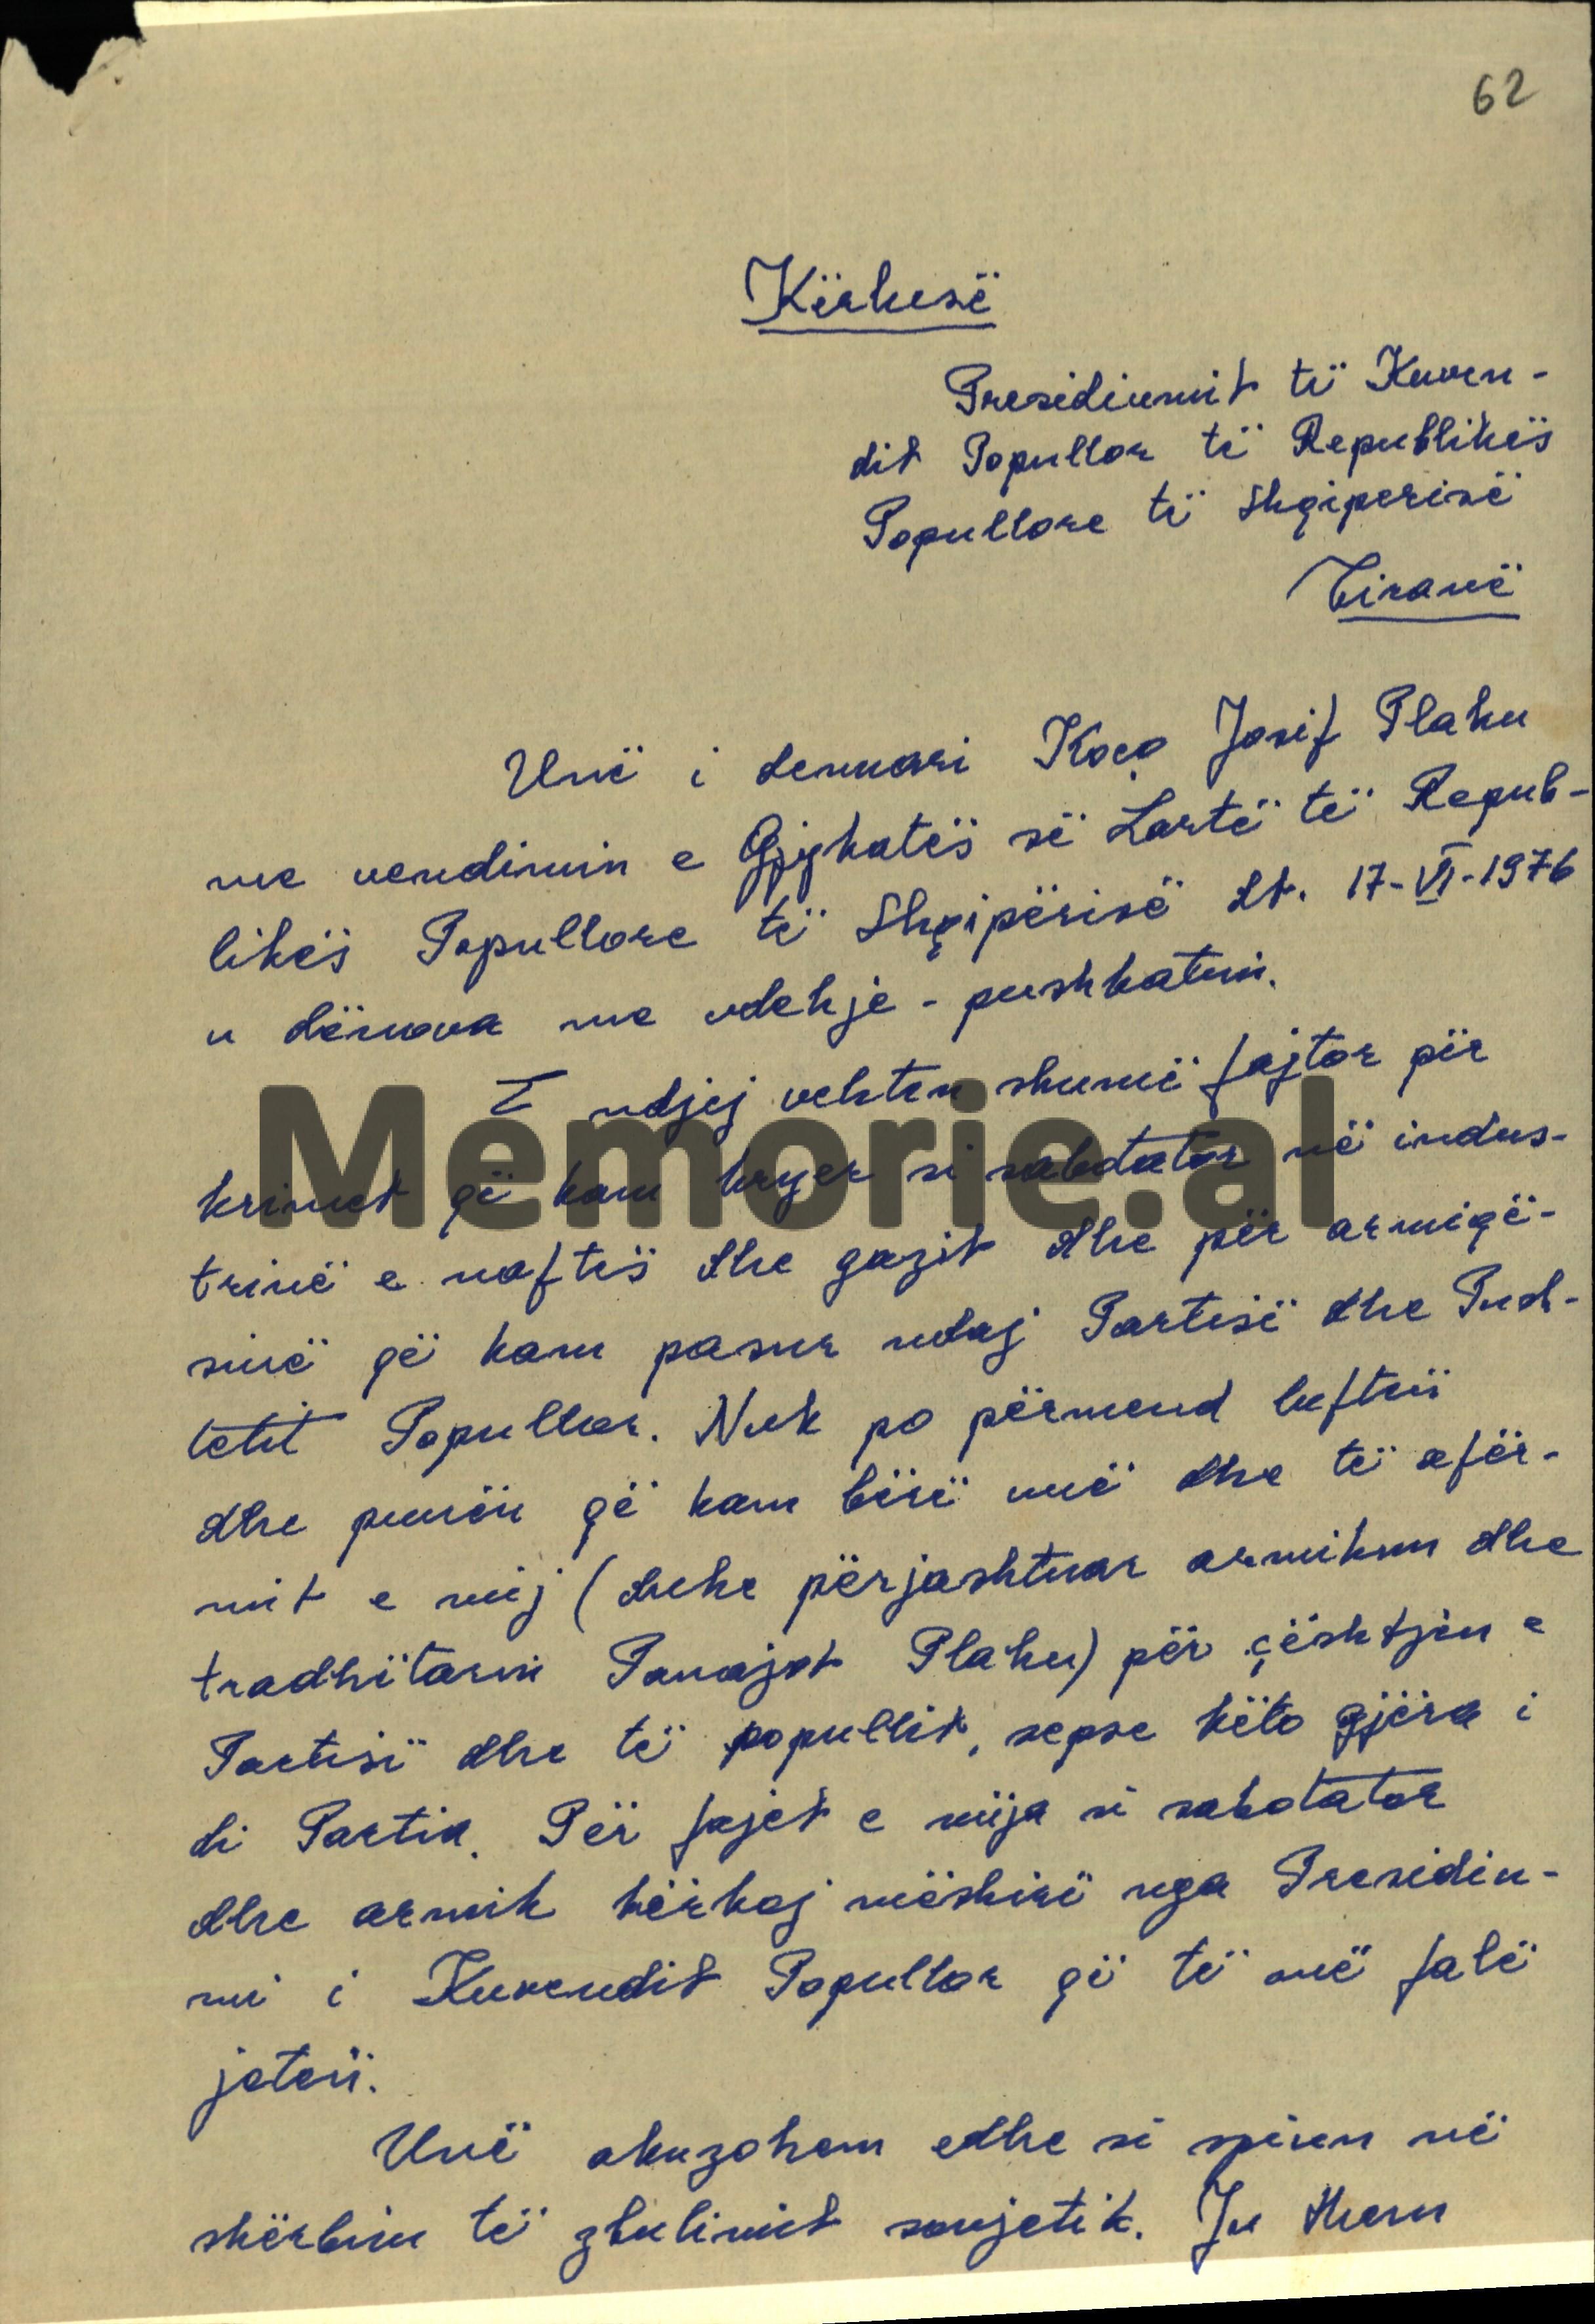 62
Kërkesë
Presidiumit të Kuven-
dit Popullor të Republikës
Popullore të Shqiperisë
Tiranë
Unë i denuari Koço Josif Plaku
me vendimin e Gjykatës së Lartë të Repub-
likës Popullore të Shqipërisë dt. 17-VI-1976
u dënova me vdekje - pushkatim.
E ndjej vehten shumë fajtor për
krimet që kam kryer si sabotator në indus-
trinë e naftës dhe gazit dhe për armiqë-
sinë që kam pasur ndaj Partisë dhe Push-
tetit Popullor. Nuk po përmend luftën
dhe punën që kam bërë unë dhe të afër-
mit e mij (duke përjashtuar armikun dhe
tradhëtarin Panajot Plaku) për çështjen e
Partisë dhe të popullit, sepse këto gjëra i
di Partia. Për fajet e mija si sabotator
dhe armik kërkoj mëshirë nga Presidiu-
mi i Kuvendit Popullor që të më falë
jetën.
Unë akuzohem edhe si spiun në
shërbim të zbulimit sovjetik. Ju them
Memorie.al